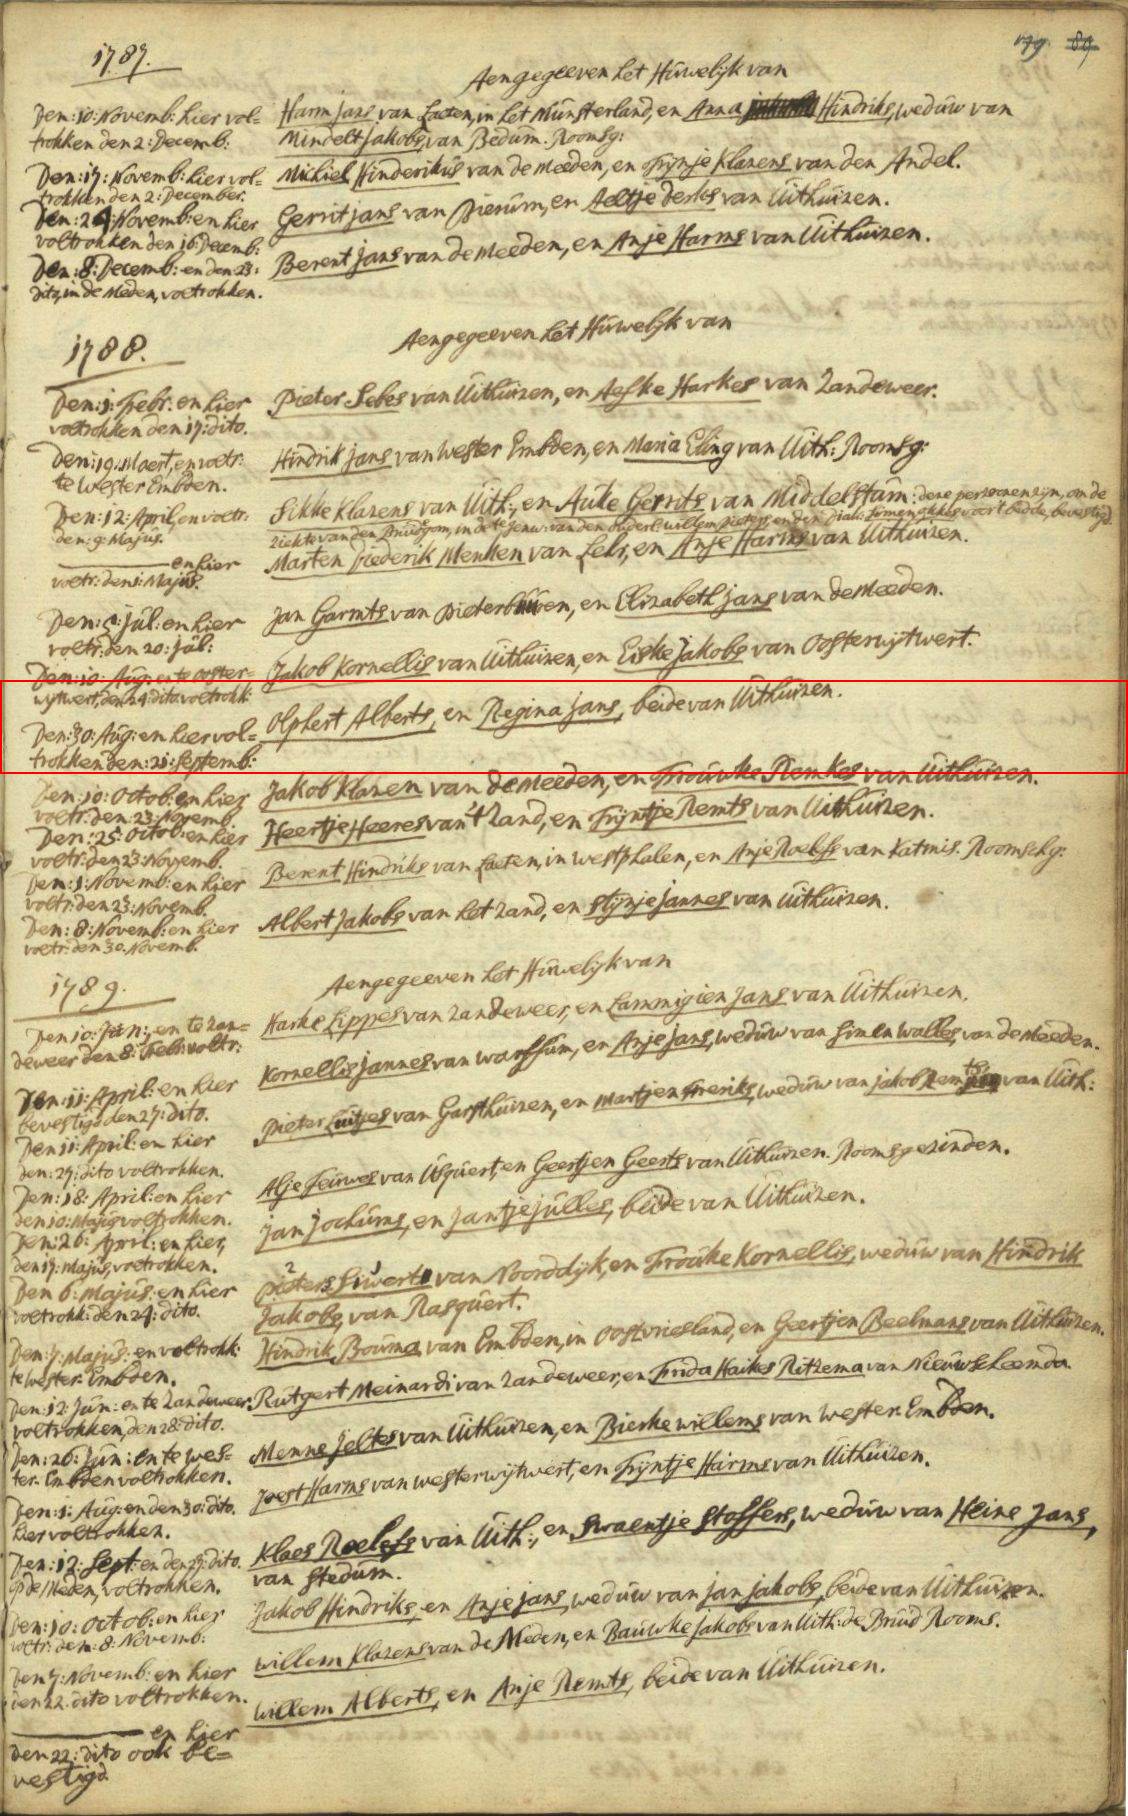 179. 89
1787.
Aengegeeven het Hüwelijk van
Den: 10: Novemb: hier vol=
trokken den 2: Decemb:
Harm jans van Laeten, in het Münsterland, en Anna Hindriks, wedüw van
Mindelt Jakobs, van Bedüm. Roomsg:
Den: 17: Novemb: hier vol=
trokken den 2: December.
Michiel Hinderikús van de Meeden, en Trijnje Klazens van den Andel.
Den: 24 Novemb: en hier
voltrokken den 16: Decemb:
Gerrit jans van Pierúm, en Aeltje Derks van Uithúizen.
Den: 8: Decemb: en den 23:
dito, in de Meden, voltrokken.
Berent Jans van de Meeden, en Anje Harms van Uithúizen.
1788.
Aengegeeven het Húwelijk van
Den: 1: Febr: en hier
voltrokken den 17: dito.
Pieter Sebes van Uithúizen, en Aefke Harkes van Zandeweer.
Den: 19: Maert, en voltr:
te Wester Embden.
Hindrik jans van Wester Embden, en Maria Eling van Uith: Roomsg:
Den: 12: April, en voltr:
den: 9: Majús.
Sikke Klazens van Uith:, en Auke Gerrits van Middelstúm: deze personen zijn, om de
ziekte van den Brúidgom, in de tegenw: van den ouderl: willem pieters, en den Diak:
en hier
voltr: den 1: Majús.
Marten Diederik Menken van Lehr, en Anje Harms van Uithúizen.
Den: 5: júl: en hier
voltr: den 20: júl:
Jan Garmts van pieterbúúren, en Elizabeth jans van de Meeden.
Den: 10: Aúg: en te ooster=
wijtwert, den 24: dito voltrokk:
Jakob Kornellis van Uithúizen, en Eiske Jakobs van Oosterwijtwert.
Den: 30: Aúg: en hier vol=
trokken den: 21: Septemb:
Olphert Alberts, en Regina jans, beide van Uithúizen.
Den: 10: Octob: en hier
voltr: den 23: Novemb.
Jakob Klazen van de Meeden, en Troúwke Remkes van Uithúizen.
Den: 25: Octob: en hier
voltr: den 23: Novemb.
Heertje Heeres van 't Zand, en Trijntje Remts van Uithúizen.
Den: 1: Novemb: en hier
voltr: den 23: Novemb.
Berent Hindriks van Laeten, in westphalen, en Anje Roelfs van Katmis. Roomsch g:
Den: 8: Novemb: en hier
voltr: den 30. Novemb.
Albert Jakobs van het Zand, en Stijnje Jannes van Uithúizen.
1789.
Aengegeeven het Húwelijk van
Den 10: Jan:, en te Zan=
deweer den 8: Febr: voltr:
Harke Lippes van Zandeweer, en Lammigien Jans van Uithúizen.
Den: 11: April: en hier
bevestigd den 27: dito.
Kornellis jannes van warffúm, en Anje Jans, wedúw van Simen Walles, van de Meeden.
Den 11: April: en hier
den: 29: dito voltrokken.
Pieter Luitjes van Garsthúizen, en Martjen Freriks, wedúw van jakob van Uith:
Den: 18: April: en hier
den 10: Majús voltrokken.
Alje Feuwes van Usquert, en Geertjen Geerts van Uithúizen. Roomsgezinden.
Den: 26: April: en hier,
den 17: Majús, voltrokken.
Jan Jochúms, en Jantje júlles, beide van Uithúizen.
Den 6: Majús: en hier
voltrokk: den 24: dito.
pieters Siwerts van Noorddijk, en Troúke Kornellis, wedúw van Hindrik
Jakobs, van Rasquert.
Den: 7: Majús: en voltrokk:
te wester Embden.
Hindrik Boúma, van Embden, in Oostvriesland, en Geertjen Beelmans van Uithúizen.
Den: 12: Jún: en te Zandeweer
voltrokken, den 28: dito.
Rútgert Meinardi van Zandeweer, en Frida Haikes Ritzema van Nieuwscheemda
Den: 26: Jún: en te wes=
ter Embden voltrokken.
Menne Jeltes van Uithúizen, en Bierke willems van Wester Embden.
Den: 1: Aúg: en den 30: dito.
hier voltrokken.
Joest Harms van westerwijtwert, en Trijntje Harms van Uithúizen.
Den: 12: Sept: en den 27: dito.
op de Meden, voltrokken.
Klaes Roelefs van Uith:, en Swaentje Stoffers, wedúw van Heine Jans,
van Stedúm.
Den: 10: Octob: en hier
voltr: den: 8: Novemb:
Jakob Hindriks, en Anje jans, wedúw van jan jakobs, beide van Uithúizen.
Den 7: Novemb: en hier
den 22: dito voltrokken.
willem Klazens van de Meden, en Baúwke Jakobs van Uith: de Brúid Rooms.
en hier
den 22: dito ook be=
vestigd
willem Alberts, en Anje Remts, beide van Uithúizen.